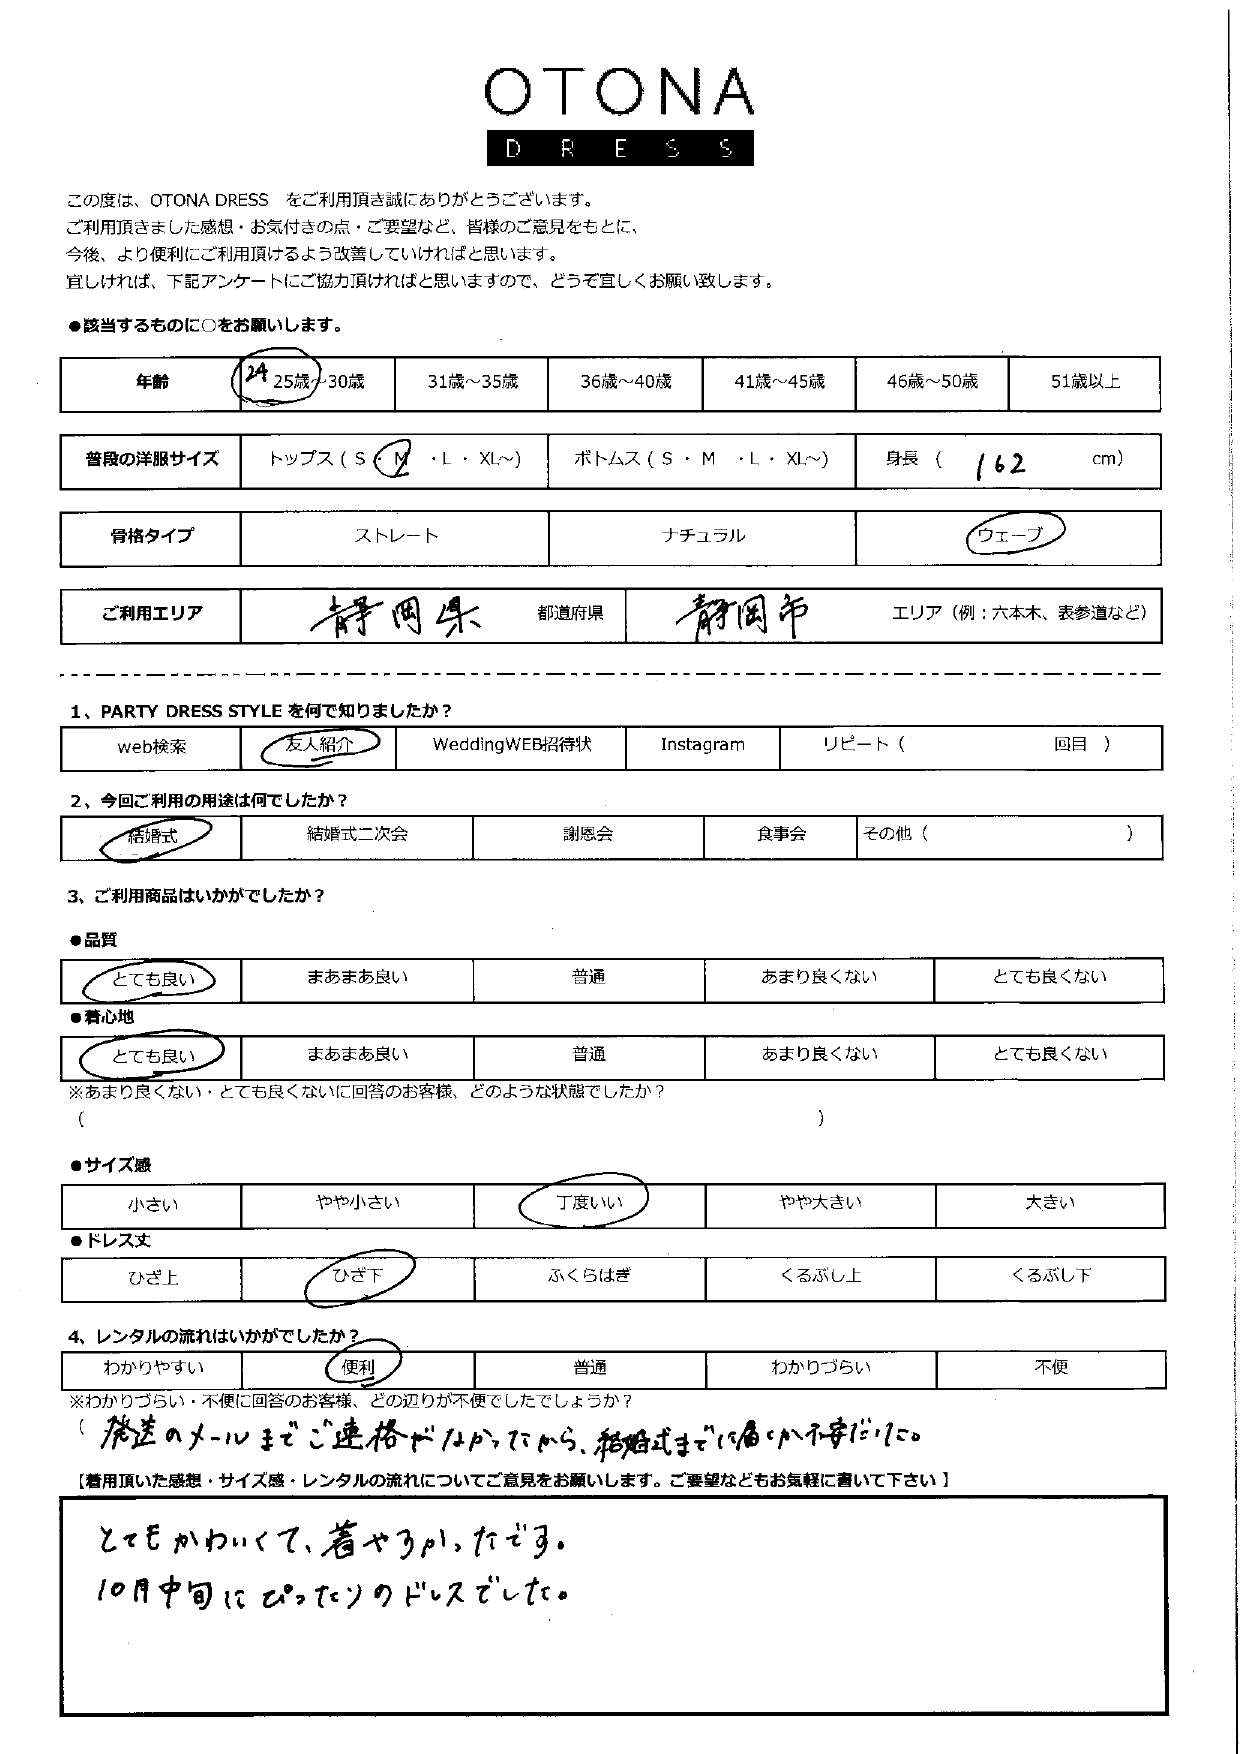 OTONA
DRESS
この度は、OTONA DRESS をご利用頂き誠にありがとうございます。
ご利用頂きました感想・お気付きの点・ご要望など、皆様のご意見をもとに、
今後、より便利にご利用頂けるよう改善していければと思います。
宜しければ、下記アンケートにご協力頂ければと思いますので、どうぞ宜しくお願い致します。
●該当するものに○をお願いします。
年齢 24 25歳～30歳 31歳～35歳 36歳～40歳 41歳～45歳 46歳～50歳 51歳以上
普段の洋服サイズ トップス（ S ・ M ・L ・ XL～） ボトムス（ S ・ M ・L ・ XL～） 身長 （ 162 cm）
骨格タイプ ストレート ナチュラル ウェーブ
ご利用エリア 静岡県 都道府県 静岡市 エリア（例：六本木、表参道など）
1、PARTY DRESS STYLE を何で知りましたか？
web検索 友人紹介 WeddingWEB招待状 Instagram リピート（ 回目 ）
2、今回ご利用の用途は何でしたか？
結婚式 結婚式二次会 謝恩会 食事会 その他（ ）
3、ご利用商品はいかがでしたか？
●品質
とても良い まあまあ良い 普通 あまり良くない とても良くない
●着心地
とても良い まあまあ良い 普通 あまり良くない とても良くない
※あまり良くない・とても良くないに回答のお客様、どのような状態でしたか？
（ ）
●サイズ感
小さい やや小さい 丁度いい やや大きい 大きい
●ドレス丈
ひざ上 ひざ下 ふくらはぎ くるぶし上 くるぶし下
4、レンタルの流れはいかがでしたか？
わかりやすい 便利 普通 わかりづらい 不便
※わかりづらい・不便に回答のお客様、どの辺りが不便でしたでしょうか？
（ 発送のメールまでご連絡がなかったから、結婚式までに届くか不安だった。
【着用頂いた感想・サイズ感・レンタルの流れについてご意見をお願いします。ご要望などもお気軽に書いて下さい 】
とてもかわいくて、着やすかったです。
10月中旬にぴったりのドレスでした。